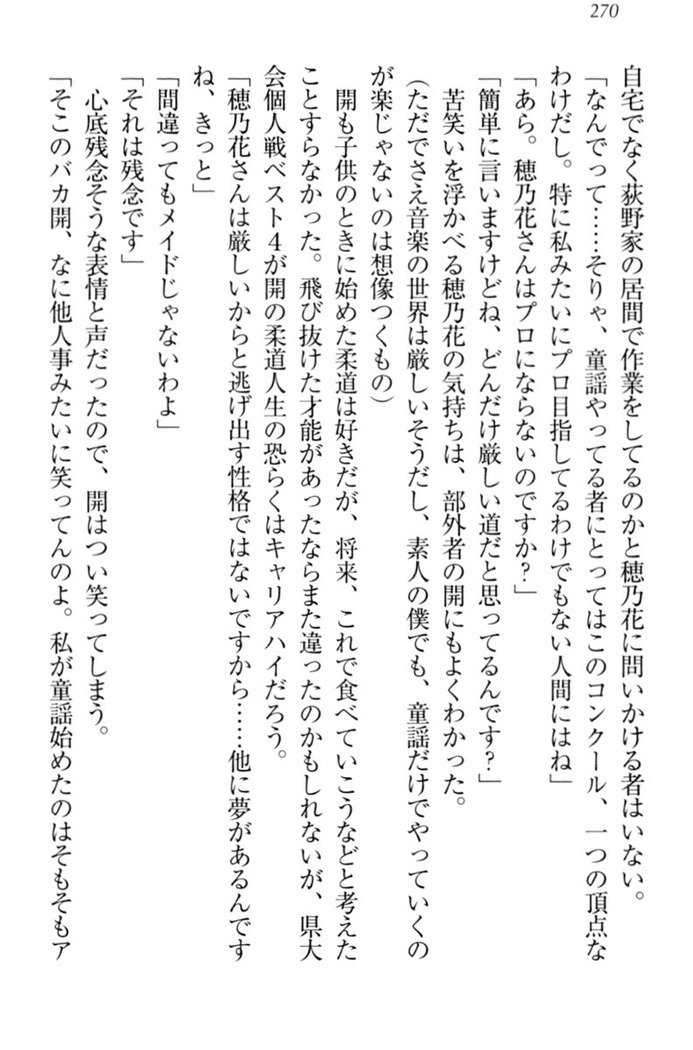 270
自宅でなく荻野家の居間で作業をしてるのかと穂乃花に問いかける者はいない。
「なんでって……そりゃ、童謡やってる者にとってはこのコンクール、一つの頂点な
わけだし。特に私みたいにプロ目指してるわけでもない人間にはね」
「あら。穂乃花さんはプロにならないのですか？」
「簡単に言いますけどね、どんだけ厳しい道だと思ってるんです？」
苦笑いを浮かべる穂乃花の気持ちは、部外者の開にもよくわかった。
（ただでさえ音楽の世界は厳しいそうだし、素人の僕でも、童謡だけでやっていくの
が楽じゃないのは想像つくもの）
開も子供のときに始めた柔道は好きだが、将来、これで食べていこうなどと考えた
ことすらなかった。飛び抜けた才能があったならまた違ったのかもしれないが、県大
会個人戦ベスト4が開の柔道人生の恐らくはキャリアハイだろう。
「穂乃花さんは厳しいからと逃げ出す性格ではないですから……他に夢があるんです
ね、きっと」
「間違ってもメイドじゃないわよ」
「それは残念です」
心底残念そうな表情と声だったので、開はつい笑ってしまう。
「そこのバカ開、なに他人事みたいに笑ってんのよ。私が童謡始めたのはそもそもア